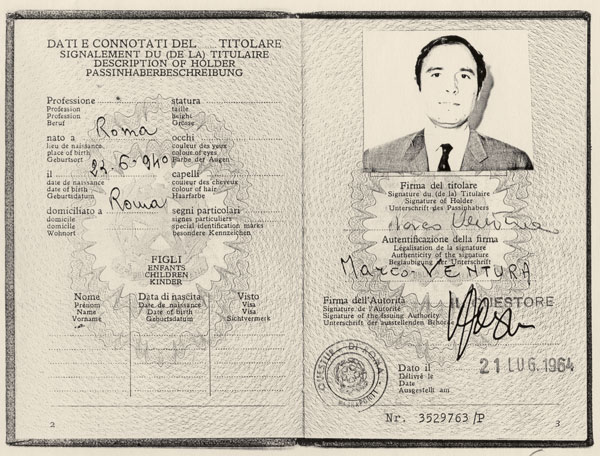 DATI E CONNOTATI DEL TITOLARE
SIGNALEMENT DU (DE LA) TITULAIRE
DESCRIPTION OF HOLDER
PASSINHABERBESCHREIBUNG
Professione
Profession
Profession
Beruf
statura
taille
height
Grösse
nato a Roma
lieu de naissance
place of birth
Geburtsort
occhi
couleur des yeux
colour of eyes
Farbe der Augen
il 23-6-940
date de naissance
date of birth
Geburtsdatum
capelli
couleur des cheveux
colour of hair
Haarfarbe
domiciliato a Roma
domicile
domicile
Wohnort
segni particolari
signes particuliers
special identification marks
besondere Kennzeichen
FIGLI
ENFANTS
CHILDREN
KINDER
Nome
Prénom
Name
Vorname
Data di nascita
Date de naissance
Date of birth
Geburtsdatum
Visto
Visa
Visa
Sichtvermerk
2
Firma del titolare
Signature du (de la) Titulaire
Signature of Holder
Unterschrift des Passinhabers
Marco Ventura
Autentificazione della firma
Légalisation de la signature
Authenticity of the signature
Beglaubigung der Unterschrift
MARCO VENTURA
Firma dell'Autorità
Signature de l'Autorité
Signature of the Issuing Authority
Unterschrift der ausstellenden Behörde
IL QUESTORE
QUESTURA DI ROMA
PASSAPORTI
Dato il
Délivré le
Date
Ausgestellt am
21 LUG. 1964
Nr. 3529763 /P
3